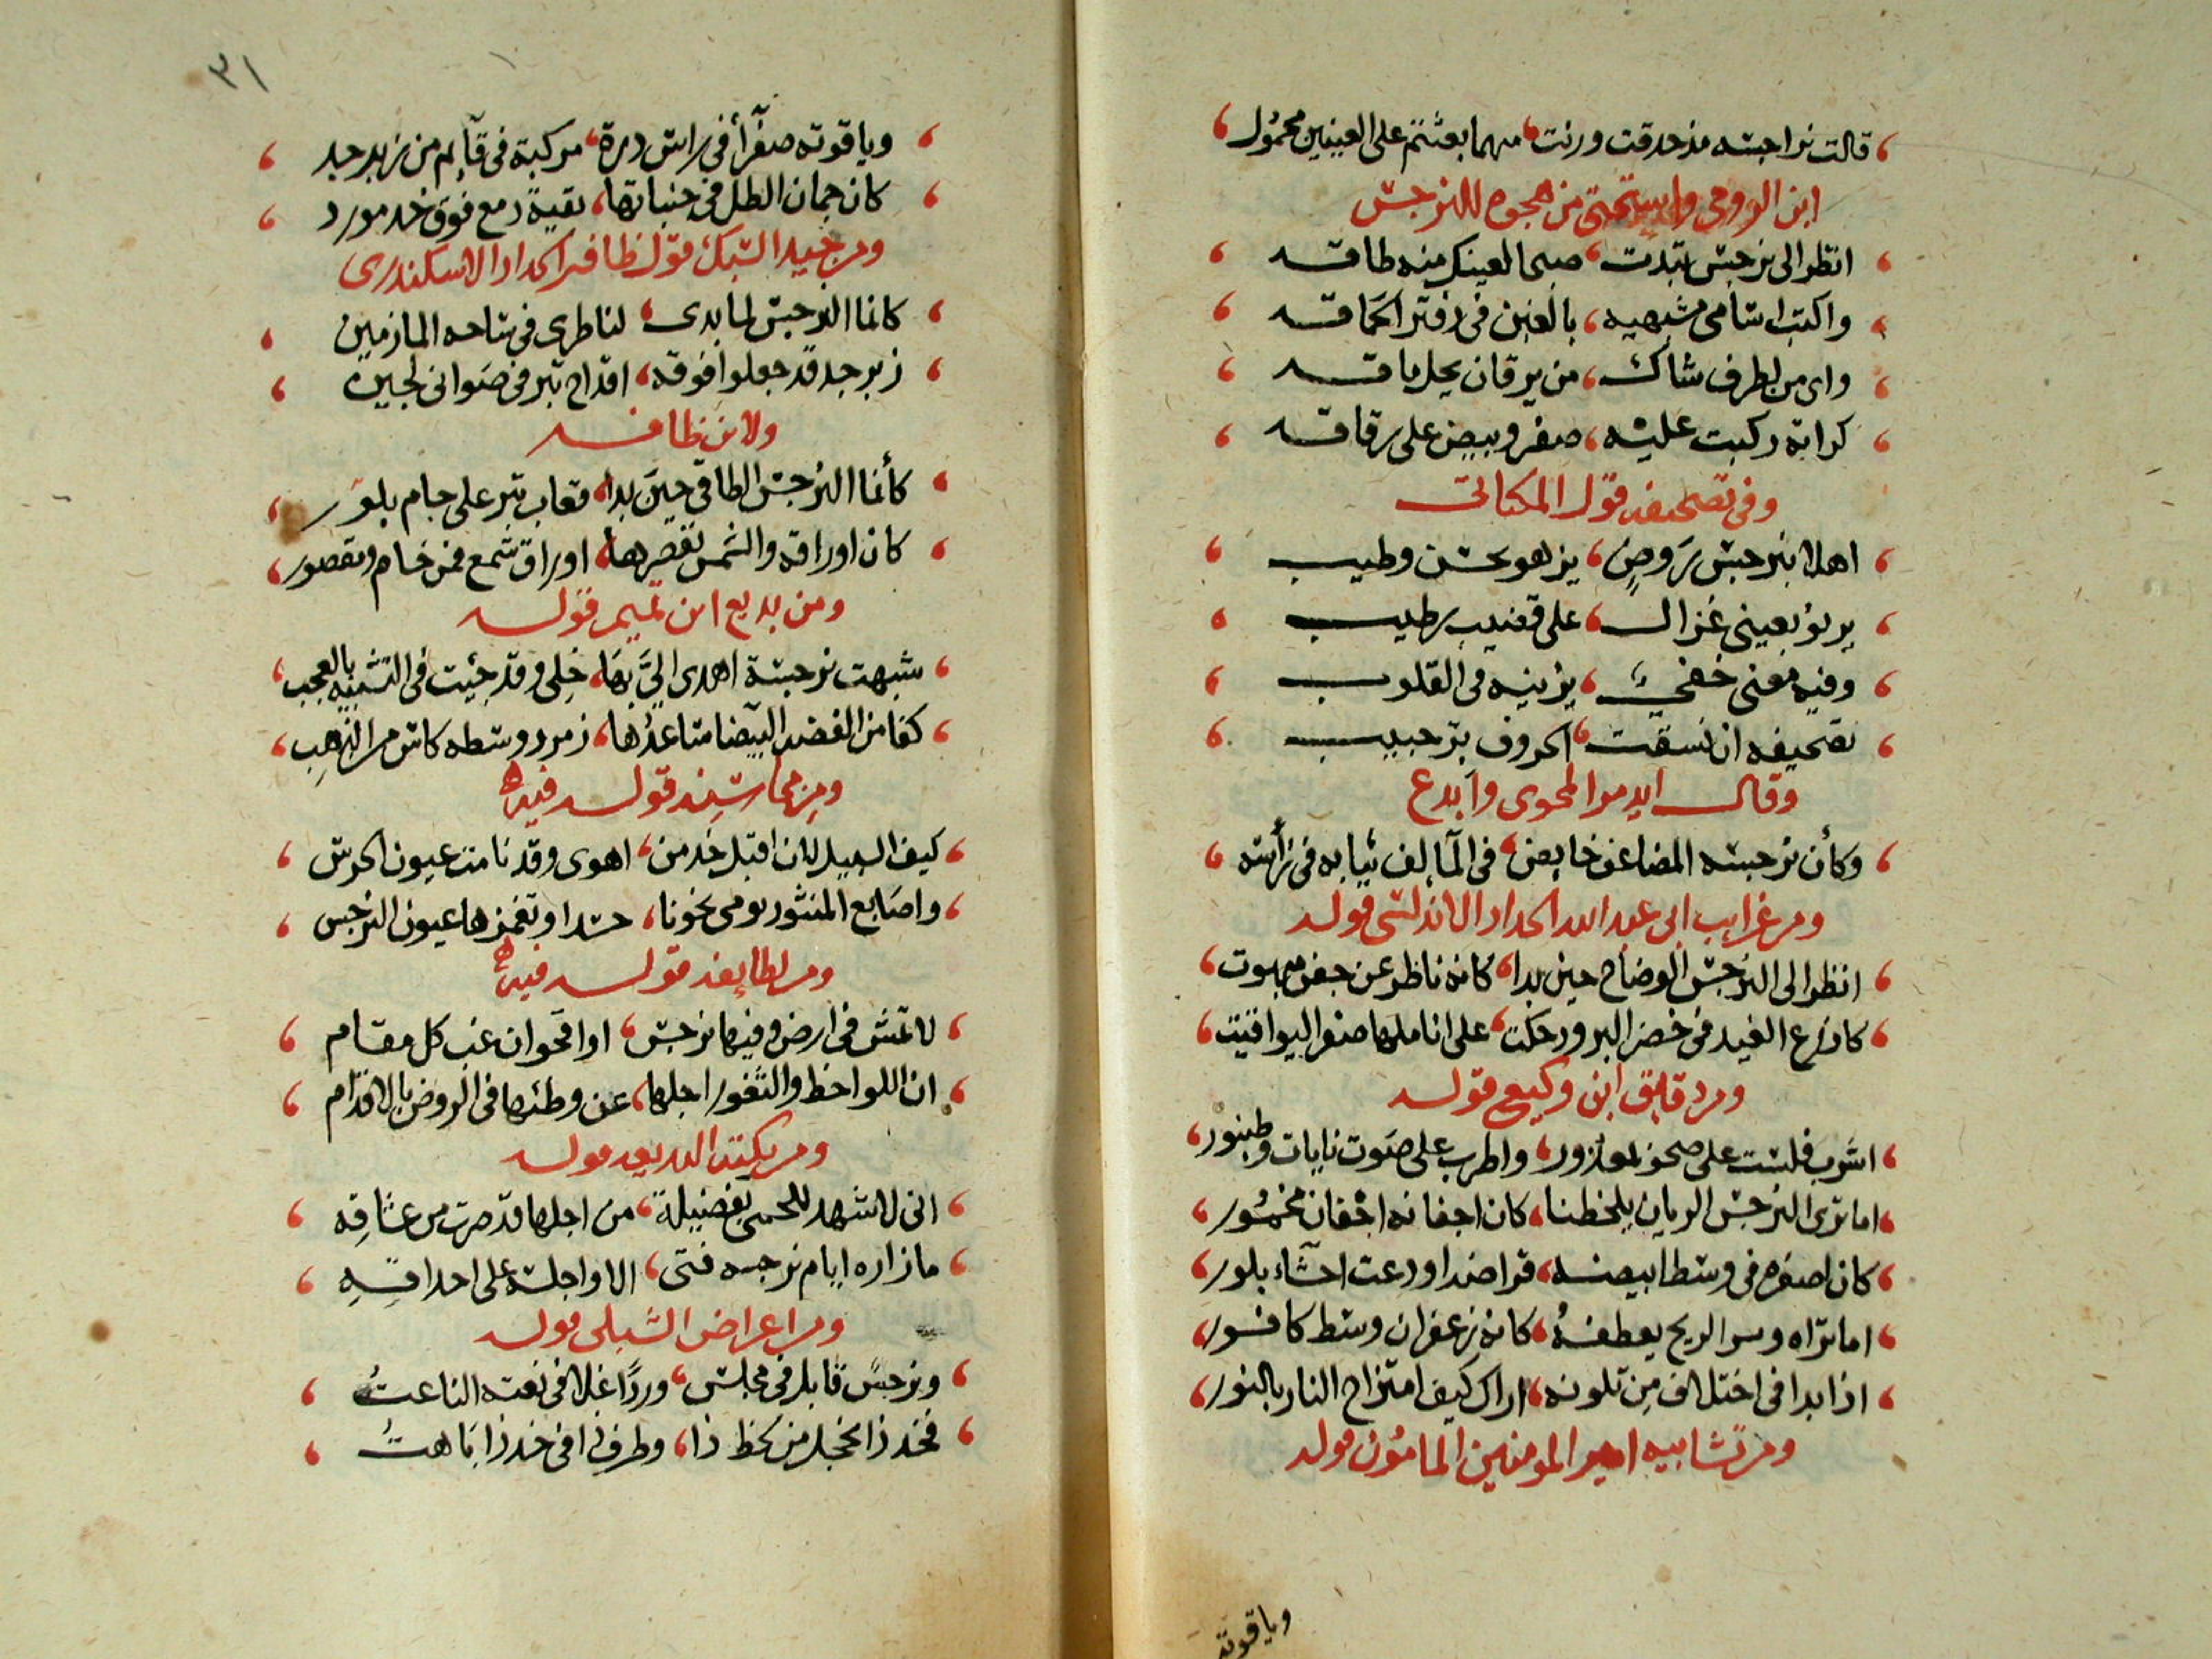 قالت نراجسه مذ حدقت ورنت، مهما بعثتم على العينين محمول
ابن الرومي واستحيى من هجوه للنرجس
انظر الى نرجس تبدت، صبحا لعينيك منه طاقه
واكتب اسامى مشبهيه، بالعين في دفتر الحماقه
واى من لطرف شاك، من يرقان يحل ماقه
كراثة ركبت عليه، صفر وبيض على رقاقه
وفي تصحيفه قول
اهلا بنرجس روض، يزهو بحسن وطيب
يرنو بعيني غزال، على قضيب رطيب
وفيه معنى خفي، يزينه في القلوب
تصحيفه ان نسقت، الحروف بر حبيب
وقال ايدمر المحيوى وابدع
وكأن نرجسه المضاعف خايض، في المآ لف ثيابه في رأسه
ومن غرايب ابى عبد الله الحداد الاندلسى قوله
انظر الى النرجس الوضاح حين بدا، كانه ناظر عن جفن مبهوت
كاذرع الغيد في خضر البرود حكت، على اناملها صفر اليواقيت
ومن دقايق ابن وكيع قوله
اشرب فلست على صحو بمعذور، واطرب على صوت نايات وطنبور
اما ترى النرجس الريان يلحظنا، كان اجفانه اجفان مخمور
كان اصفره في وسط ابيضه، قراضة اودعت احشاء بلور
اما تراه ومر الريح يعطفه، كانه زعفران وسط كافور
اذا بدا في اختلاف من تلونه، اراك كيف امتزاج النار بالنور
ومن تشابيه امير المومنين المامون قوله
وياقوتة
٣١
وياقوتة صفرآ في راس درة، مركبة في قآيم من زبرجد
كان جمان الطل في جنباتها، بقية دمع فوق خد مورد
ومن جيد السبك قول ظافر الحداد الاسكندرى
كانما النرجس لما بدى، لناظرى في ساحه
زبرجد قد جعلوا فوقه، اقداح تبر في صوانى لجين
ولابن ظافر
كأنما النرجس الطاقي حين بدا، قعاب تبر على جام بلور
كان اوراقه والشمس تقصرها، اوراق شمع فمن خام ومقصور
ومن بديع ابن تميم قوله
شبهت نرجسة اهدى الي بها، خلي وقد جئيت في التشبيه بالعجب
كفا من الفضه البيضا ساعدها، زمرد وسطه كاس من الذهب
ومن محاسنه قوله فيها
كيف السبيل لان اقبل خد من، اهوى وقد نامت عيون الحرس
واصابع المنثور تومى نحونا، حسدا وتغمزها عيون النرجس
ومن لطايفه قوله فيها
لا تمش في ارض وفيها نرجس، او اقحوان غب كل مقام
ان اللواحظ والثغور اجلها، عن وطئها في الروض بالاقدام
ومن نكته البديعه قوله
انى لاشهد للحمى بفضيلة، من اجلها قد صرت من عشاقه
ما زاره ايام نرجسه فتى، الا واجلسه على احداقه
ومن اعراض الشبلى قوله
ونرجس قابل في مجلس، وردا غلا في نعته الناعت
فخد ذا يخجل من لحظ ذا، وطرف ذا في خد ذا باهت